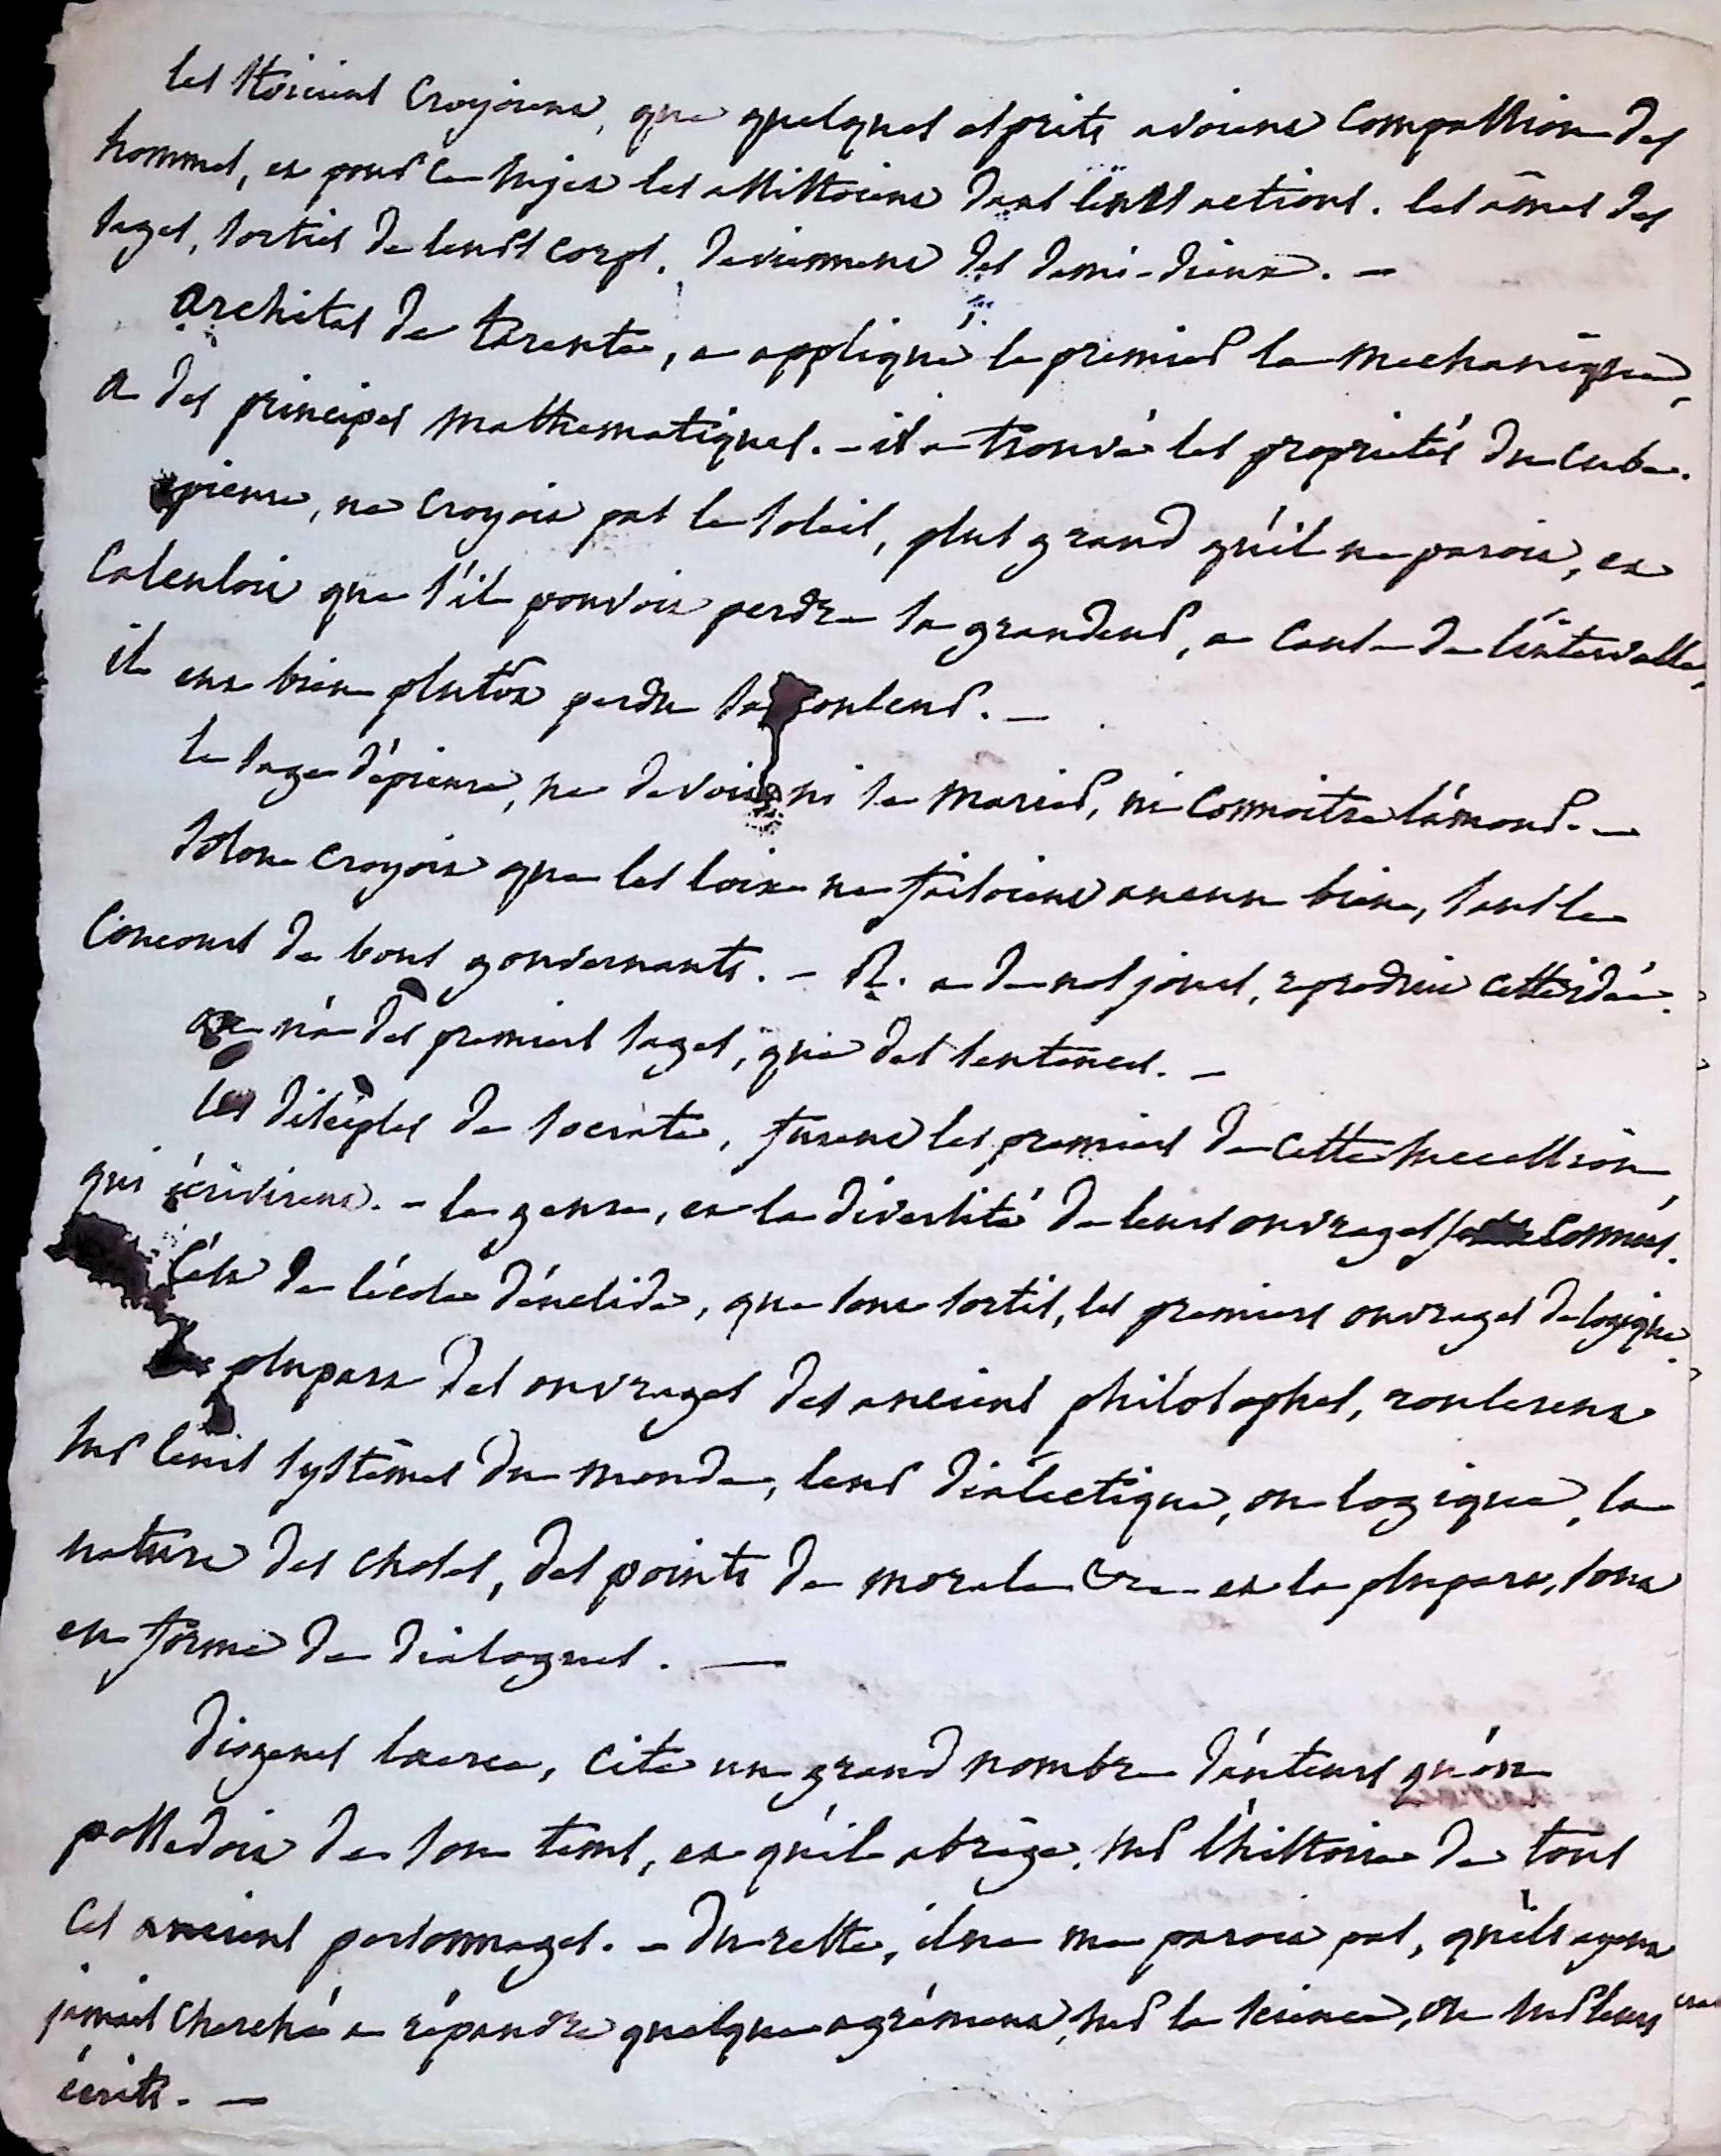 les stoiciens croyoient, que quelques esprits avoient compassion des
hommes, et pour ce sujet les assistoient dans leurs actions. les âmes des
sages, sorties de leurs corps, deviennent des demi-dieux. —
architas de tarente, a appliqué le premier la mechanique,
a des principes mathematiques. - il a trouvé les propriétés du cube.
epicure, ne croyoit pas le soleil, plus grand qu'il ne paroit, et
calculoit que s'il pouvoit perdre sa grandeur, a cause de l'intervalle,
il eut bien plutôt perdu sa couleur. —
le sage d'épicure, ne devoit ni se marier, ni connoitre l'amour. —
solon croyoit que les loix ne faisoient aucun bien, sans le
concours de bons gouvernants. - R. a de nos jours, reproduit cette idée.
on n'a des premiers sages, que des sentences. —
les disciples de socrate, furent les premiers de cette succession,
qui écrivirent. - le genre, et la diversité de leurs ouvrages sont connus.
c'est de l'école d'euclide, que sont sortis, les premiers ouvrages de logique.
la plupart des ouvrages des anciens philosophes, roulerent
sur leurs systêmes du monde, leur dialectique, ou logique, la
nature des choses, des points de morale &c. et la plupart, sont
en forme de dialogues. —
diogenes laerce, cite un grand nombre d'auteurs qu'on
possedoit de son tems, et qu'il abrège, sur l'histoire de tous
ces anciens personnages. - du reste, il ne me paroit pas, qu'ils ayent
jamais cherché a répandre quelque agrément, sur la science, ou sur leurs
écrits. —